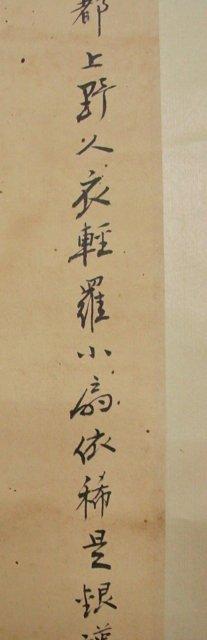 都上野人衣輕羅小扇依稀是銀漢